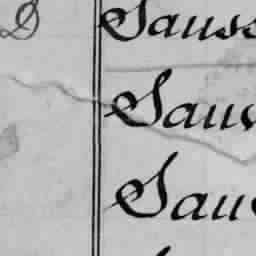 D Sauss
Sauv
Sau